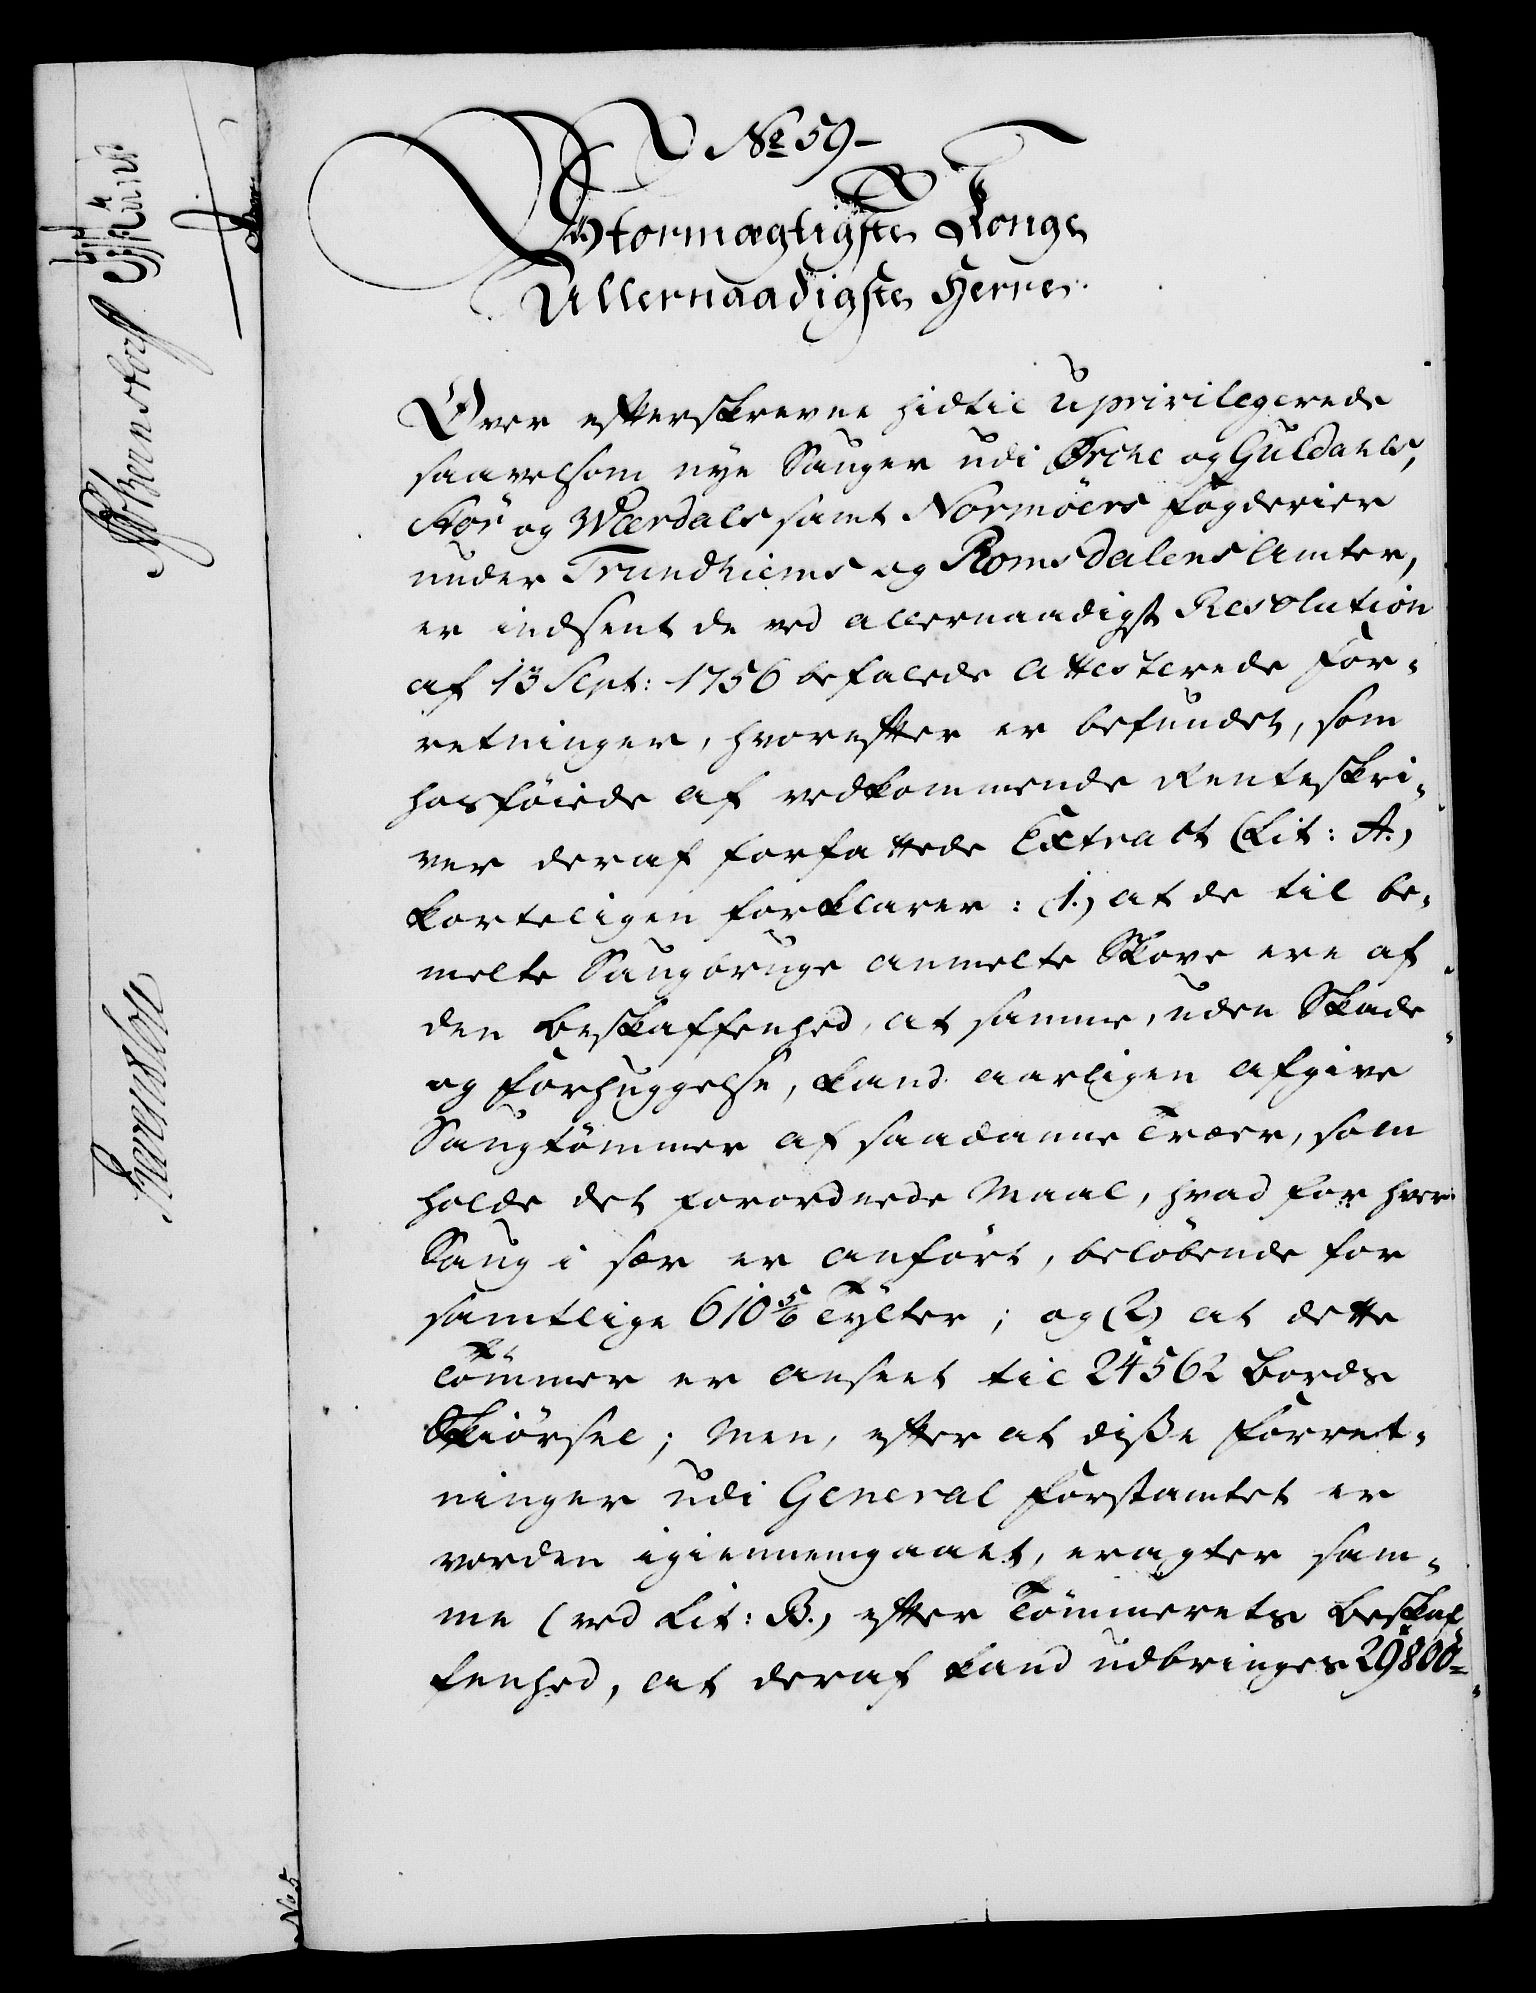 No 59
Stormægtigste Konge
Allernaadigste Herre.
Over efterskrevne hidtil uprivilegerede
saavelsom nye Sauger udi Ørche og Guldahls,
Stør og Wærdals samt Normöers Fogderier
under Trundhiems og Romsdalens Amter,
er indsent de ved allernaadigst Resolution
af 13 Sept: 1756 befalede Attesterede For-
retninger, hvorefter er befundet, som
hosföiede af vedkommende Renteskri-
ver deraf forfattede Extract (Lit: A.)
korteligen forklarer: (1.) at de til be-
melte Saugbruge anmelte Skove ere af
den Beskaffenhed, at samme, uden Skade
og Forhuggelse, kand aarligen afgive
Saugtömmer af saadanne Træer, som
holde det forordnede Maal, hvad for hver
Saug i sær er anfört, belöbende for
samtlige 610 5/6 Tylter; og (2) at dette
Tömmer er anseet til 24562 Bords
Skiörsel; Men, efter at diße Forret-
ninger udi General Forstamtet er
vorden igiennemgaaet, eragter sam-
me (ved Lit: B.) efter Tömmerets Beskaf-
fenhed, at deraf kand udbringes 29800